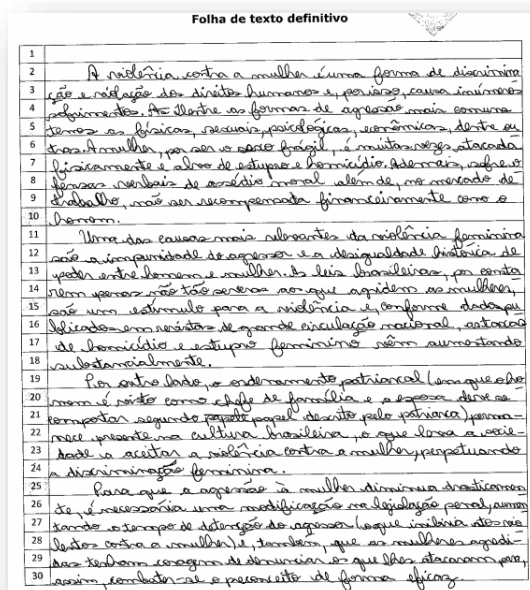 Folha de texto definitivo
1
2 A violência contra a mulher é uma forma de discrimina
3 ção e violação dos direitos humanos e, por isso, causa inúmeros
4 sofrimentos. As dentre as formas de agressão mais comuns
5 temos as físicas, sexuais, psicológicas, econômicas, dentre ou
6 tras. A mulher, por ser o sexo frágil, é muitas vezes, atacada
7 fisicamente e alvo de estupro e homicídio. Ademais, sofre o
8 fensas verbais de assédio moral além de, no mercado de
9 trabalho, não ser recompensada financeiramente como o
10 homem.
11 Uma das causas mais relevantes da violência feminina
12 são a impunidade do agressor e a desigualdade histórica de
13 poder entre homem e mulher. As leis brasileiras, por conta
14 rem penas não tão severas aos que agridem as mulheres,
15 são um estímulo para a violência e, conforme dados pu
16 blicados em revistas de grande circulação nacional, as taxas
17 de homicídio e estupro feminino vêm aumentando
18 substancialmente.
19 Por outro lado, o ordenamento patriarcal (em que o ho
20 mem é visto como chefe de família e a esposa deve se
21 comportar segundo papel descrito pelo patriarca) perma-
22 nece presente na cultura brasileira, o que leva a socie-
23 dade a aceitar a violência contra a mulher, perpetuando
24 a discriminação feminina.
25 Para que a agressão à mulher diminua drasticamen
26 te, é necessária uma modificação na legislação penal, aumen
27 tando o tempo de detenção do agressor (o que inibiria atos vio
28 lentos contra a mulher) e, também, que as mulheres agredi-
29 das tenham coragem de denunciar os que lhes atacaram para,
30 assim, combater-se o preconceito de forma eficaz.